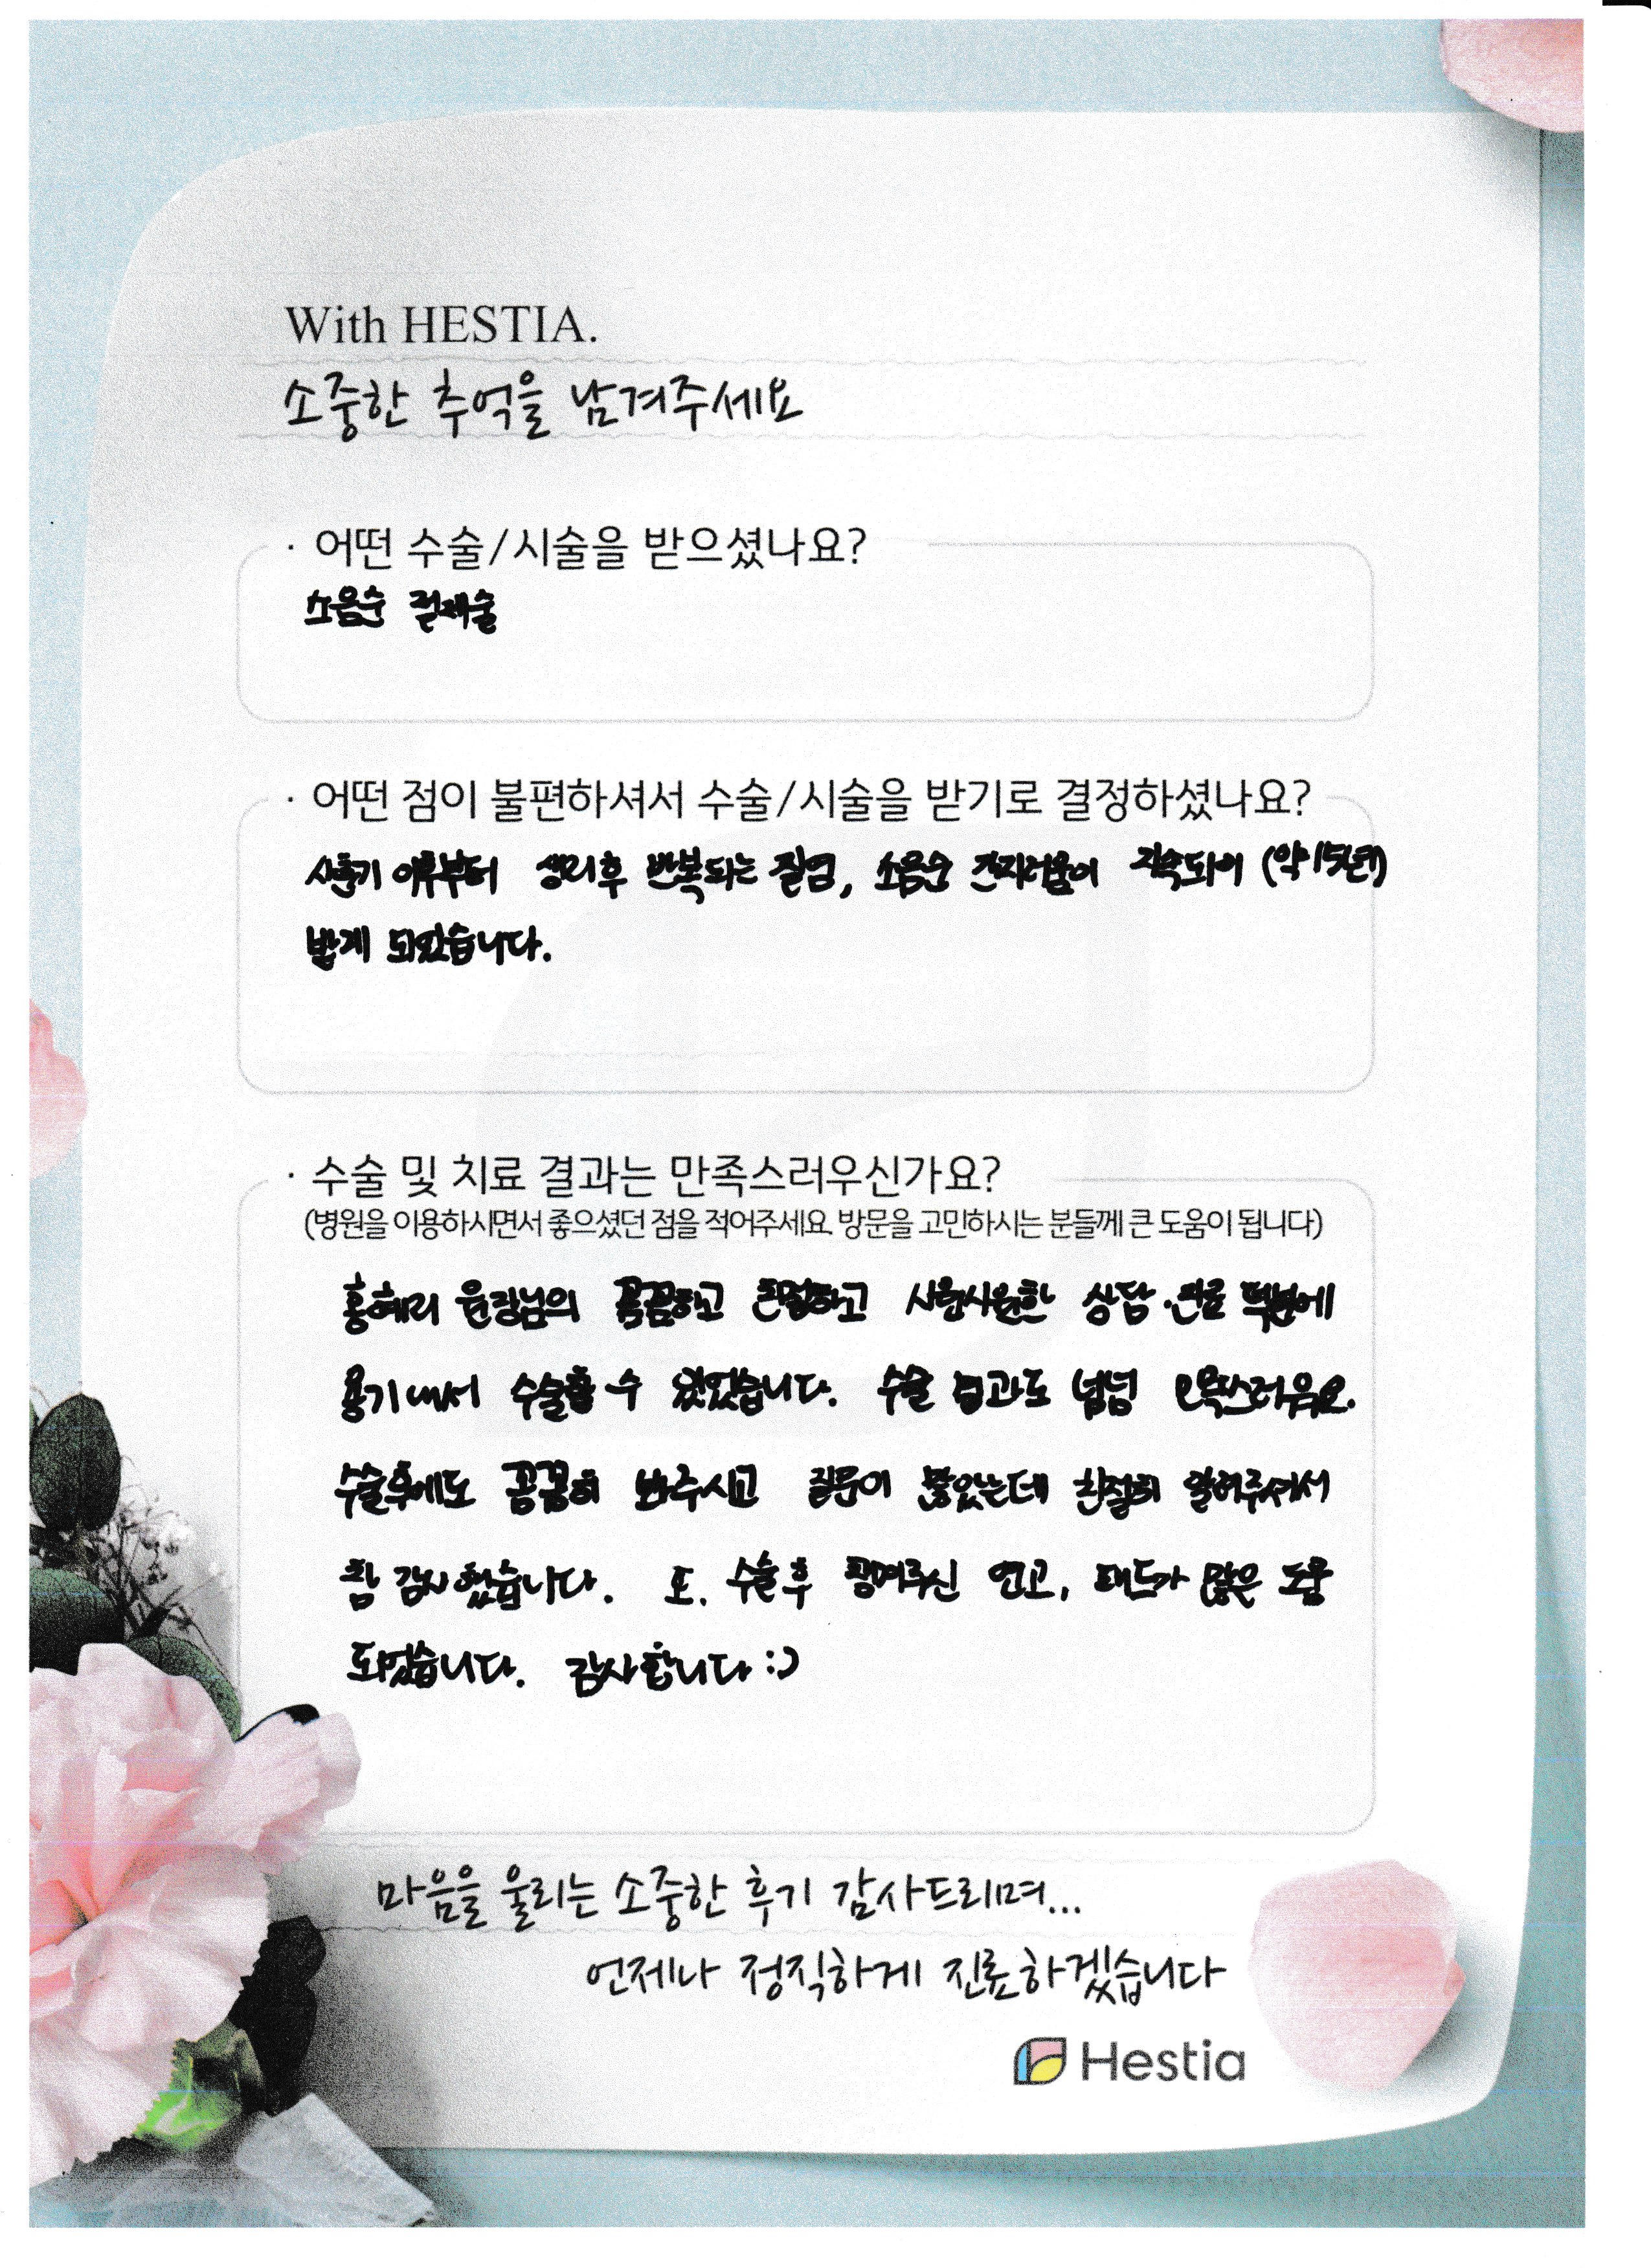 With HESTIA.
소중한 추억을 남겨주세요
· 어떤 수술/시술을 받으셨나요?
소음순 절제술
· 어떤 점이 불편하셔서 수술/시술을 받기로 결정하셨나요?
사춘기 이후부터 생리후 반복되는 질염, 소음순 간지러움이 지속되어 (약15년)
받게 되었습니다.
· 수술 및 치료 결과는 만족스러우신가요?
(병원을 이용하시면서 좋으셨던 점을 적어주세요. 방문을 고민하시는 분들께 큰 도움이 됩니다)
홍혜리 원장님의 꼼꼼하고 친절하고 시원시원한 상담·진료 덕분에
용기내서 수술할 수 있었습니다. 수술 결과도 넘넘 만족스러워요.
수술후에도 꼼꼼히 봐주시고 질문이 많았는데 친절히 알려주셔서
참 감사했습니다. 또, 수술 후 챙겨주신 연고, 패드가 많은 도움
되었습니다. 감사합니다 :)
마음을 울리는 소중한 후기 감사드리며...
언제나 정직하게 진료하겠습니다
Hestia